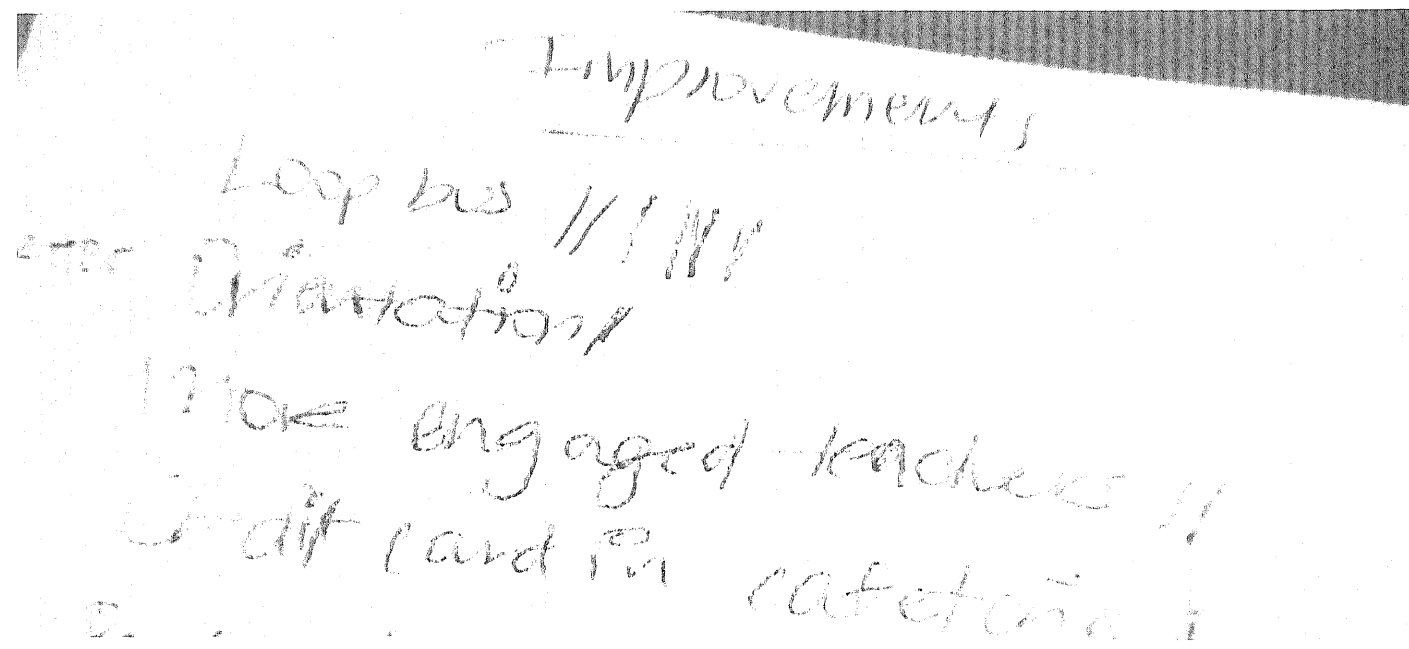 Improvements
Loop bus // / /// //
Orientation /
More engaged teachers //
Credit card in cafeteria /